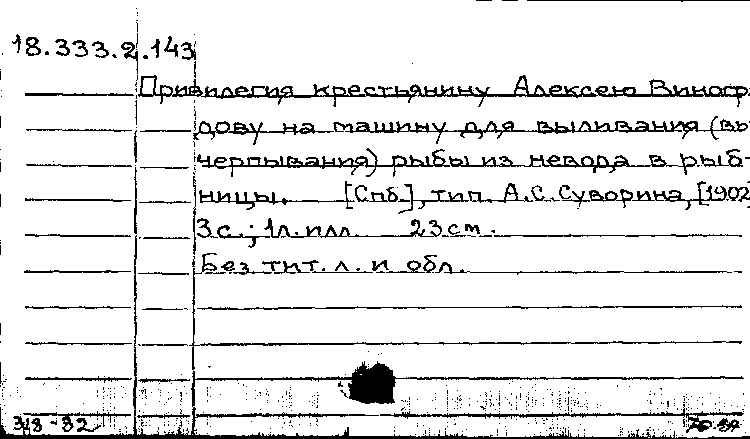 18.333.2.143
Привилегия крестьянину Алексею Виногр
дову на машину для выливания (вы
черпывания) рыбы из невода в рыб-
ницы. [Спб.], тип. А.С. Суворина, [1902
3 с.; 1 л. илл. 23 см.
Без тит. л. и обл.
318-82